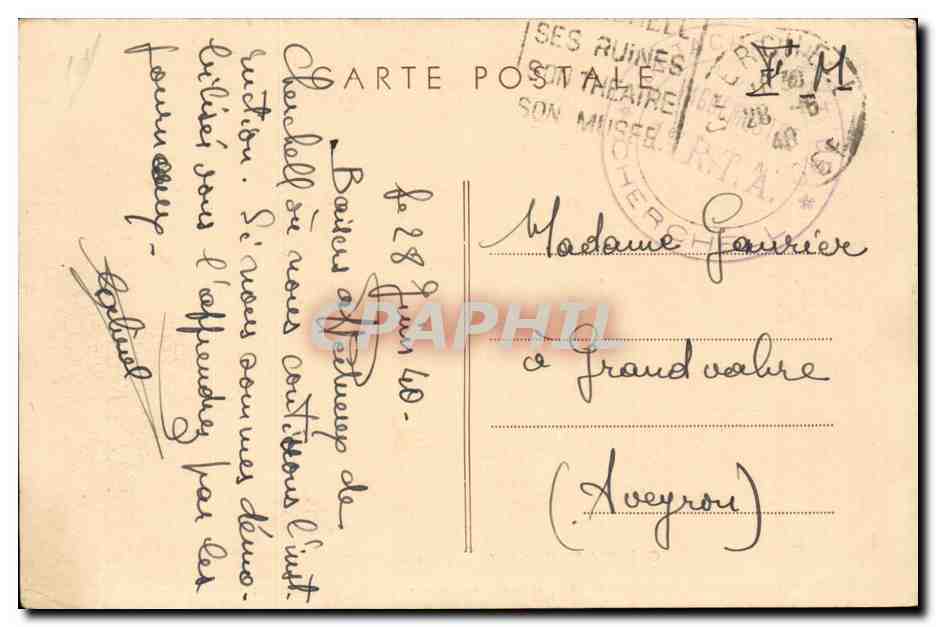 CARTE POSTALE
SES RUINES
SON THEATRE
SON MUSEE
28 -6
40
R.T.A.
CHERCHELL
F. M
le 28 Juin 40 -
Baisers affectueux de
Cherchell où nous continuons l'inst-
ruction. Si nous sommes démo-
bilisés vous l'apprendrez par les
journaux -
Madame Gaurier
à Grandvabre
(Aveyron)
CPAPHIL